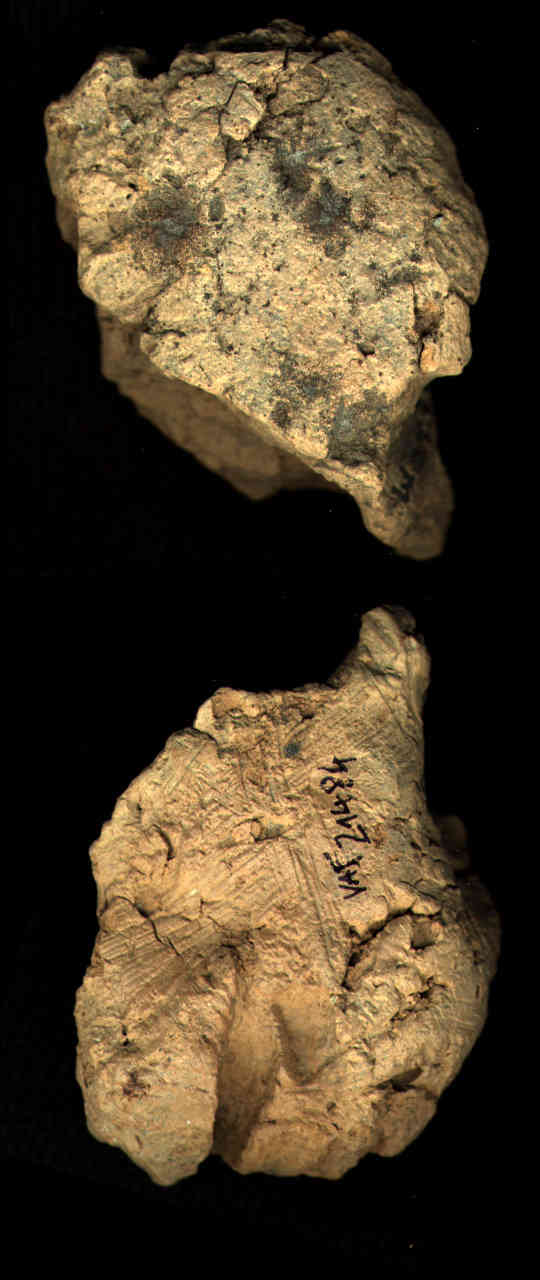 VAT 21484